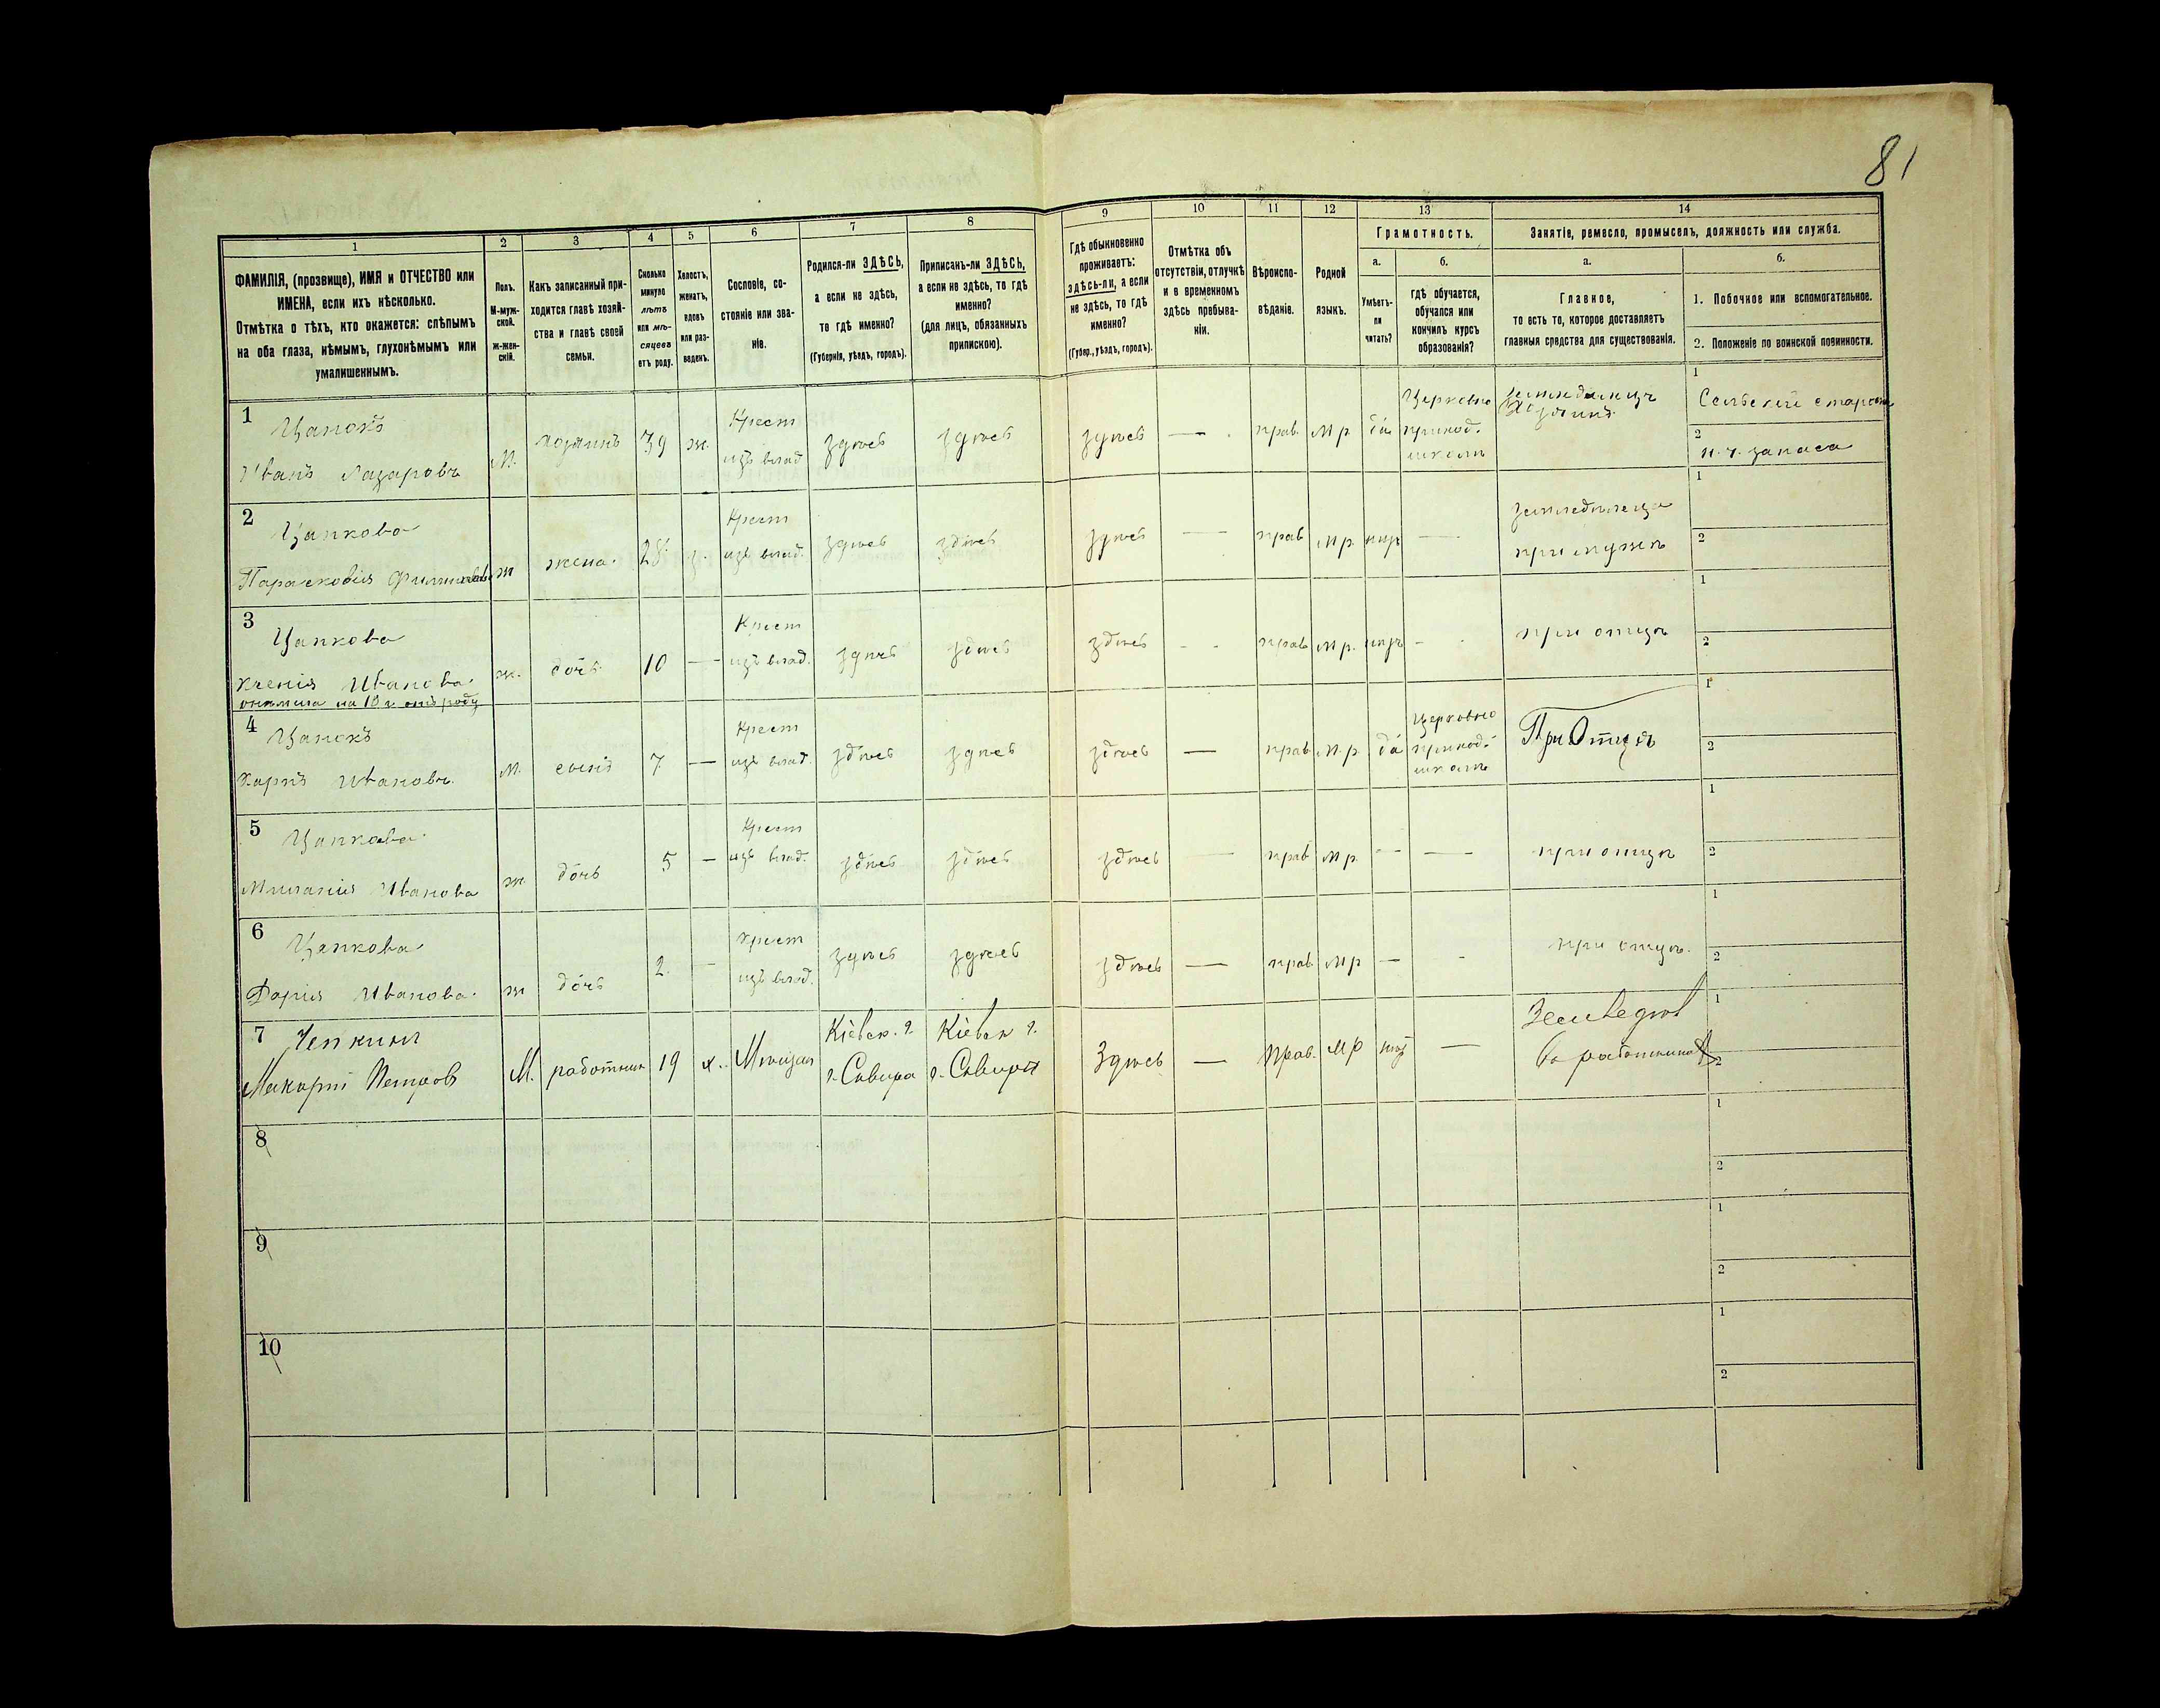 81
1 2 3 4 5 6 7 8 9 10 11 12 13 14
ФАМИЛІЯ, (прозвище), ИМЯ и ОТЧЕСТВО или
ИМЕНА, если ихъ нѣсколько.
Отмѣтка о тѣхъ, кто окажется: слѣпымъ
на оба глаза, нѣмымъ, глухонѣмымъ или
умалишеннымъ.
Полъ.
М-муж-
ской.
ж-жен-
скій.
Какъ записанный при-
ходится главѣ хозяй-
ства и главѣ своей
семьи.
Сколько
минуло
лѣтъ
или мѣ-
сяцевъ
отъ роду.
Холостъ,
женатъ,
вдовъ
или раз-
веденъ.
Сословіе, со-
стояніе или зва-
ніе.
Родился-ли ЗДѢСЬ,
а если не здѣсь,
то гдѣ именно?
(Губернія, уѣздъ, городъ).
Приписанъ-ли ЗДѢСЬ,
а если не здѣсь, то гдѣ
именно?
(для лицъ, обязанныхъ
припискою).
Гдѣ обыкновенно
проживаетъ:
здѣсь-ли, а если
не здѣсь, то гдѣ
именно?
(Губер., уѣздъ, городъ).
Отмѣтка объ
отсутствіи, отлучкѣ
и о временномъ
здѣсь пребыва-
ніи.
Вѣроиспо-
вѣданіе.
Родной
языкъ.
Грамотность.
а.
Умѣетъ-
ли
читать?
б.
гдѣ обучается,
обучался или
кончилъ курсъ
образованія?
Занятіе, ремесло, промыселъ, должность или служба.
а.
Главное,
то есть то, которое доставляетъ
главныя средства для существованія.
б.
1. Побочное или вспомогательное.
2. Положеніе по воинской повинности.
1
Цапокъ
Иванъ Лазаровъ
М.
хозяинъ
39
ж.
Крест
изъ влад
здѣсь
здѣсь
здѣсь
—
прав.
м р.
да
Церковно
приход.
школѣ
земледѣлецъ
Хозяинъ
1
Сельскій староста
2
н. ч. запаса
2
Цапкова
Парасковія Филиповна
ж
жена.
28
з.
Крест
изъ влад.
здѣсь
здѣсь
здѣсь
—
прав
м р.
нѣтъ
—
земледѣлеца
при мужѣ
1
2
3
Цапкова
Ксенія Иванова.
онѣмѣла на 10 г отъ роду
ж.
дочь
10
—
Крест
изъ влад.
здѣсь
здѣсь
здѣсь
- -
прав
м р.
нѣтъ
-
при отцѣ
1
2
4
Цапокъ
Карпъ Ивановъ.
М.
сынъ
7
—
Крест
изъ влад.
здѣсь
здѣсь
здѣсь
—
прав
м. р
да
Церковно
приход.
школѣ
При Отцѣ
1
2
5
Цапкова.
Миланія Иванова
ж
дочь
5
—
Крест
изъ влад.
здѣсь
здѣсь
здѣсь
—
прав
м р.
--
—
при отцѣ
1
2
6
Цапкова
Дарія Иванова.
ж
дочь
2.
-
Крест
изъ влад.
здѣсь
здѣсь
здѣсь
—
прав
м р
—
-
при отцѣ.
1
2
7
Макарій Петровъ
М.
работник
19
х.
Мѣщан
Кіевск. г.
г. Сквира
Кіевск г.
г. Сквиры
Здѣсь
—
Прав.
м р
—
Землед
въ работника
1
2
8
1
2
9
1
2
10
1
2